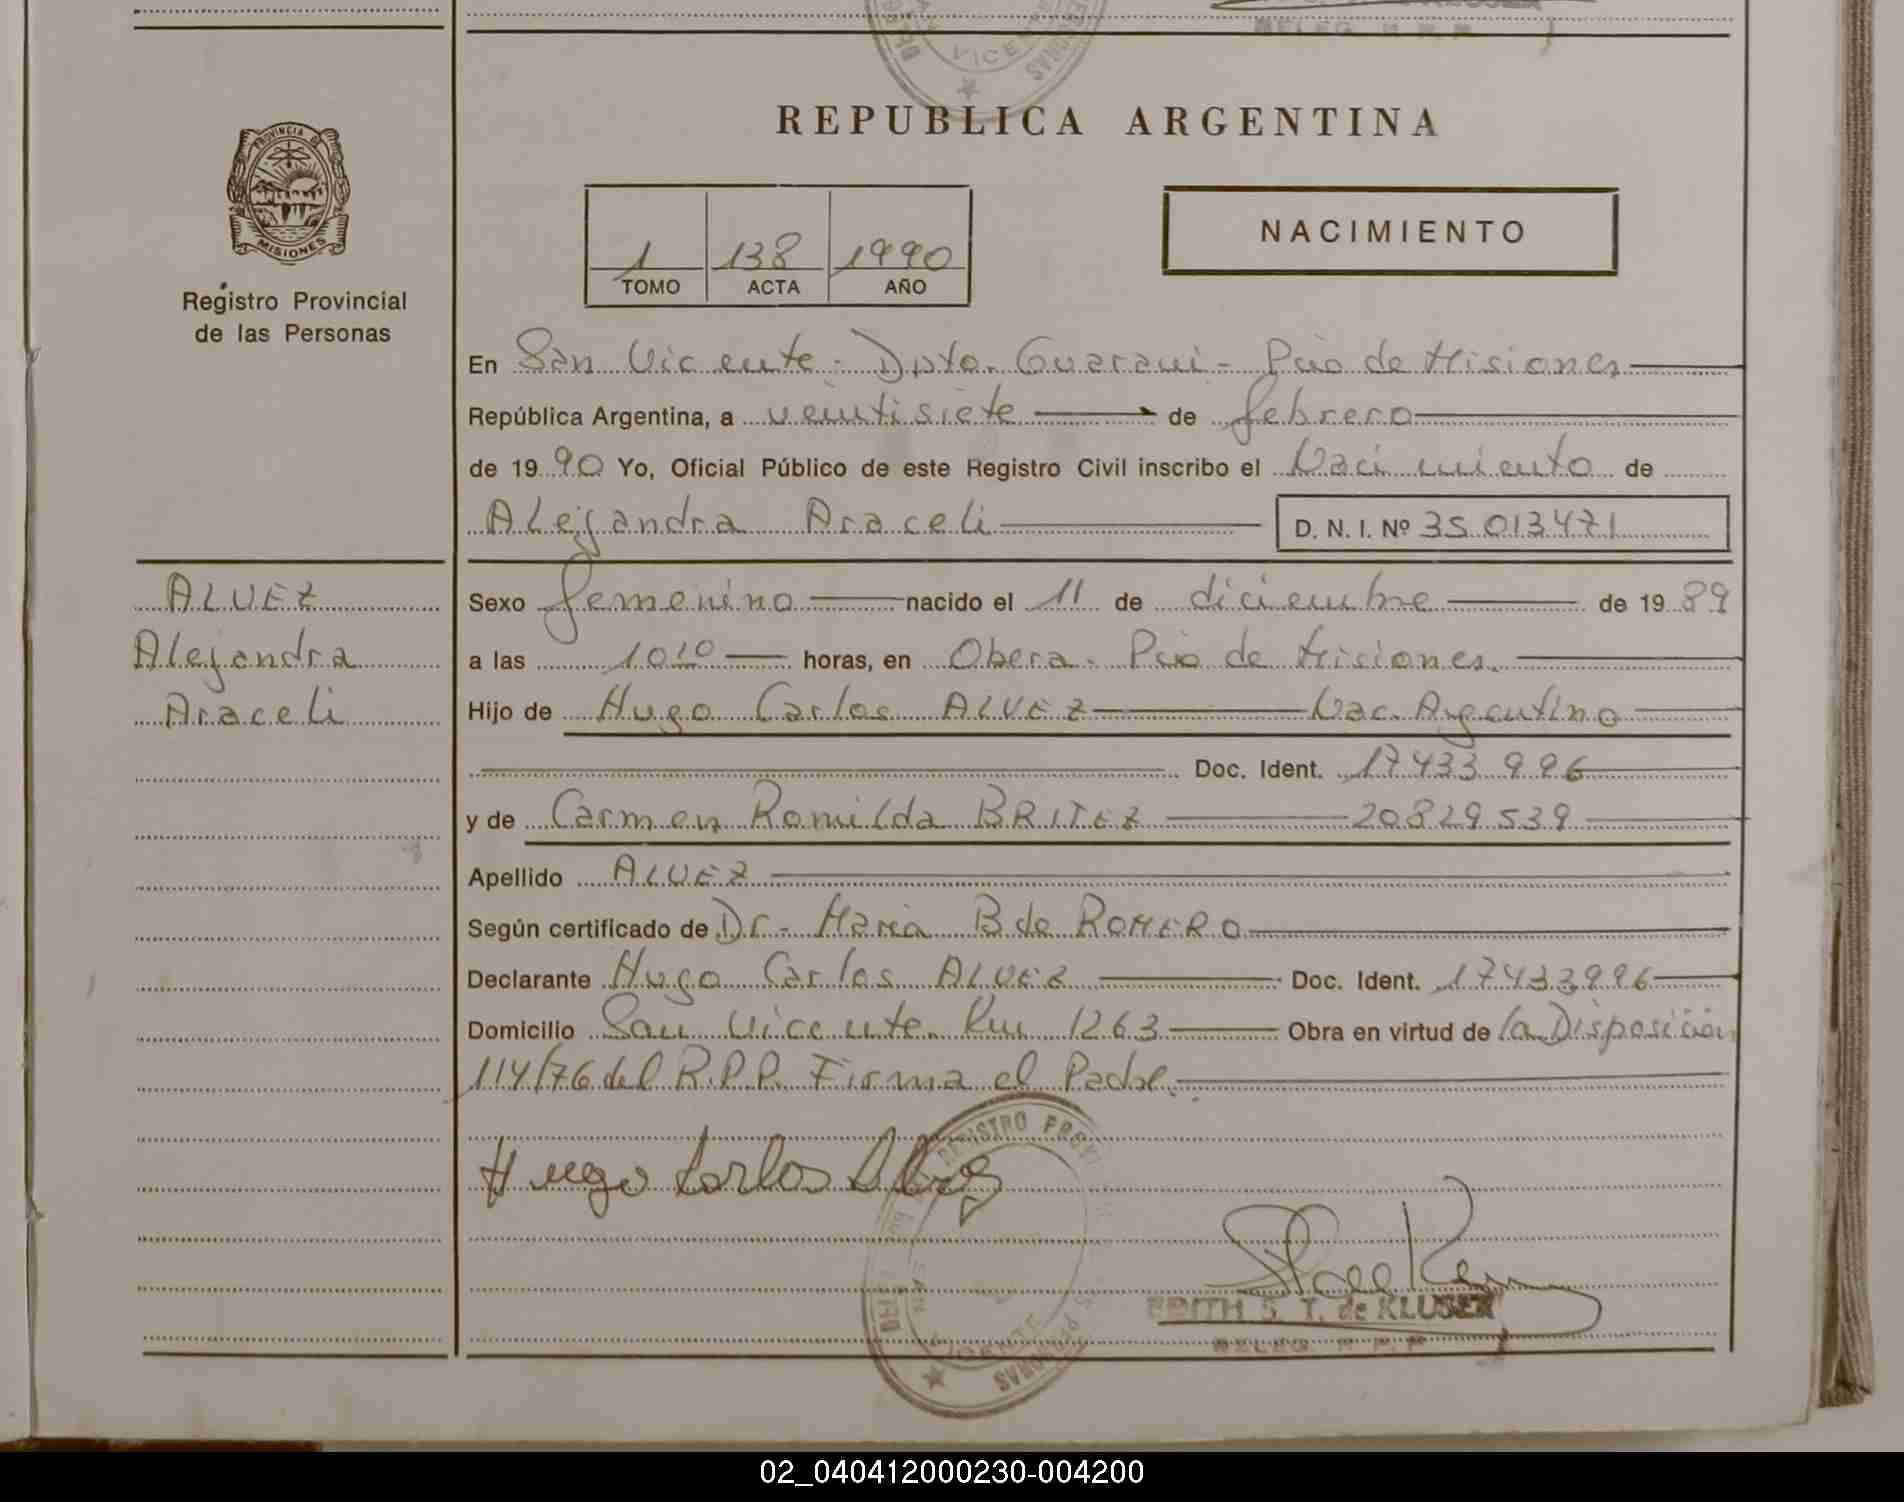 VICENTE
PERSONAS
DELEG. R.P.P.
REPUBLICA ARGENTINA
PROVINCIA DE
MISIONES
Registro Provincial
de las Personas
1 138 1990
TOMO ACTA AÑO
NACIMIENTO
En San Vicente - Dpto. Guarani - Pcio de Misiones
República Argentina, a veintisiete de febrero
de 1990 Yo, Oficial Público de este Registro Civil inscribo el Nacimiento de
Alejandra Araceli D. N. I. Nº 35.013.471
ALVEZ
Alejandra
Araceli
Sexo femenino nacido el 11 de diciembre de 1989
a las 10:10 horas, en Obera - Pcio de Misiones.
Hijo de Hugo Carlos ALVEZ Nac. Argentino
Doc. Ident. 17.433.996
y de Carmen Romilda BRITEZ 20.829.539
Apellido ALVEZ
Según certificado de Dr. Maria B de ROMERO
Declarante Hugo Carlos ALVEZ Doc. Ident. 17433996
Domicilio San Vicente Km 1263 Obra en virtud de la Disposición
114/76 del R.P.P. Firma el Padre.
Hugo Carlos Alvez
REGISTRO PROVI
VICENTE
PERSONAS
EDITH S. T. de KLUSER
DELEG. R.P.P.
02_040412000230-004200